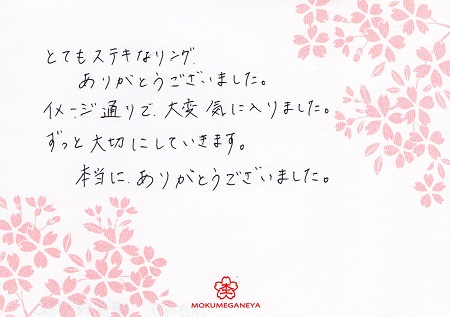 とてもステキなリング、
ありがとうございました。
イメージ通りで、大変気に入りました。
ずっと大切にしていきます。
本当に、ありがとうございました。
MOKUMEGANEYA